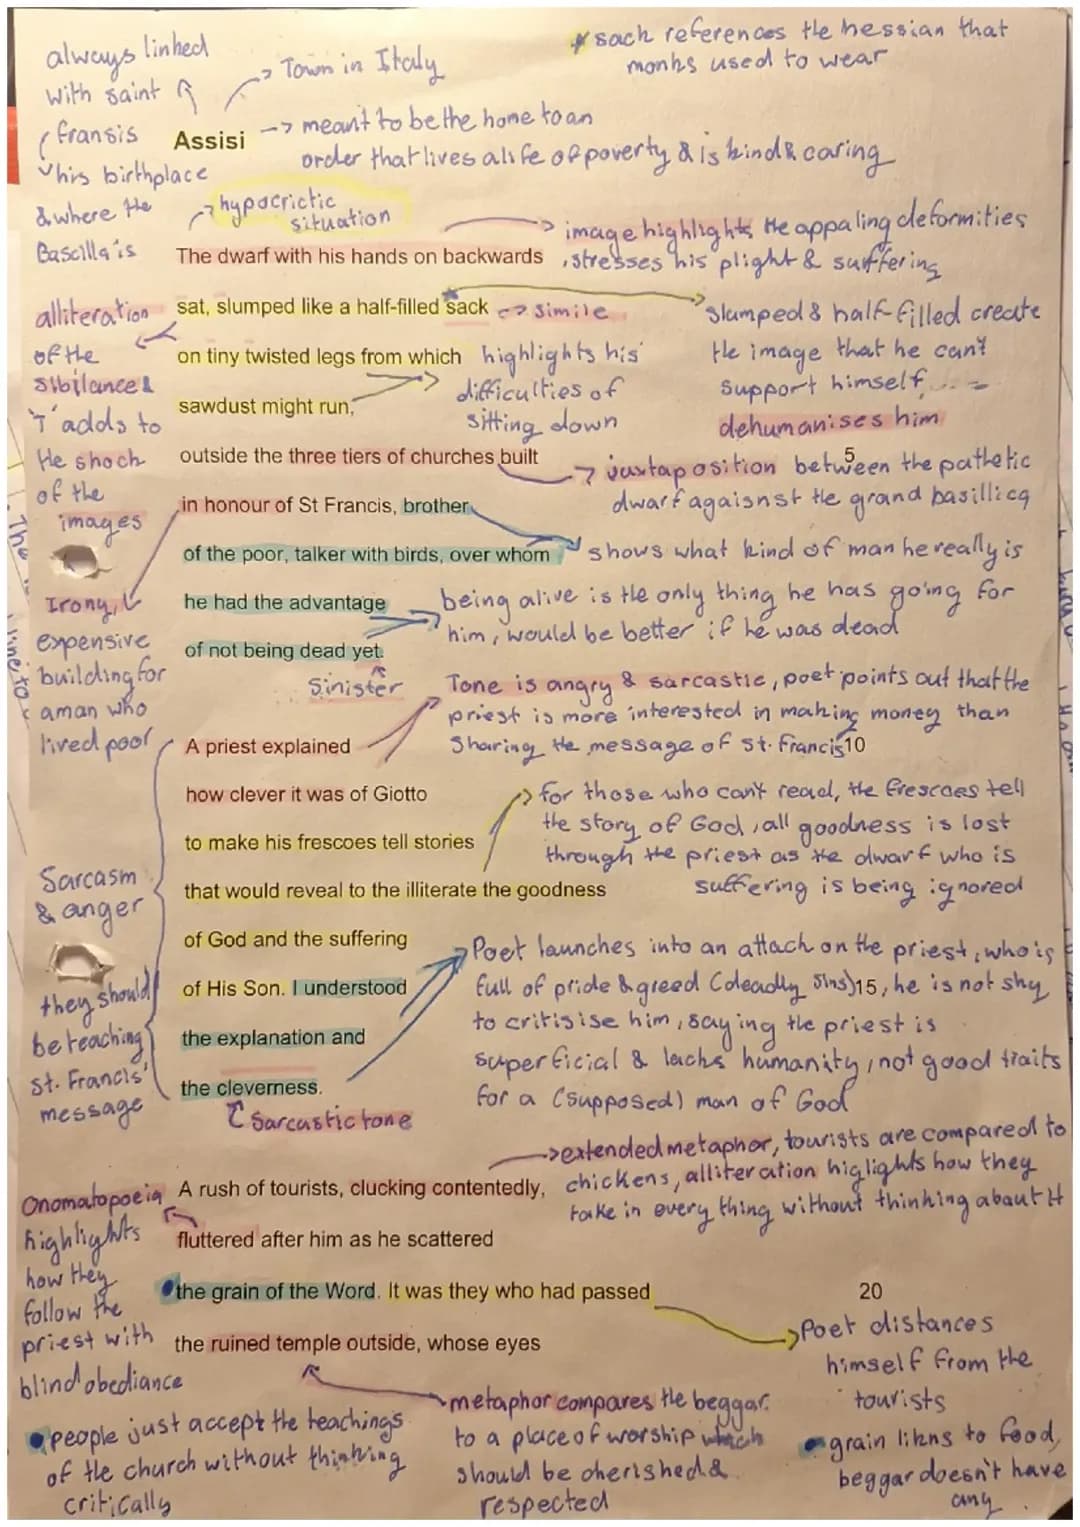 always linhed
with saint
fransis
his birthplace
& where the
Bascilla is
Town in Italy
* sach references the hessian that
monhs used to wear
Assisi
meant to be the home to an
order that lives a life of poverty & is kind & caring
hypocrictic
situation
The dwarf with his hands on backwards
image highlights the appaling deformities
, stresses his plight & suffering
sat, slumped like a half-filled sack
simile
slumped & half-filled create
the image that he can't
support himself
dehumanises him
alliteration
of the
sibilance &
'T' adds to
the shoch
of the
images
on tiny twisted legs from which
sawdust might run,
highlights his
difficulties of
sitting down
outside the three tiers of churches built
5
juxtaposition between the pathetic
dwarf agaisnst the grand basillica
in honour of St Francis, brother
of the poor, talker with birds, over whom
shows what kind of man he really is
Irony,
expensive
building for
a man who
lived poor
he had the advantage
of not being dead yet.
being alive is the only thing he has going for
him, would be better if he was dead
Sinister
Tone is angry & sarcastic, poet points out that the
priest is more interested in making money than
Sharing the message of St. Francis
A priest explained
10
how clever it was of Giotto
to make his frescoes tell stories
that would reveal to the illiterate the goodness
for those who can't read, the frescoes tell
the story of God, all goodness is lost
through the priest as the dwarf who is
suffering is being ignored
Sarcasm
& anger
they should
be teaching
St. Francis'
message
of God and the suffering
of His Son. I understood
the explanation and
the cleverness.
Sarcastic tone
Poet launches into an attach on the priest, who is
full of pride & greed (deadly sins)
15
, he is not shy
to critisise him, saying the priest is
superficial & lachs humanity, not good traits
for a (supposed) man of God
extended metaphor, tourists are compared to
chickens, alliteration higlights how they
take in every thing without thinking about it
Onomatopoeia
highlights
how they
follow the
priest with
blind obediance
A rush of tourists, clucking contentedly,
fluttered after him as he scattered
the grain of the Word. It was they who had passed
20
the ruined temple outside, whose eyes
Poet distances
himself from the
tourists
people just accept the teachings
of the church without thinking
critically
metaphor compares the beggar
to a place of worship which
should be cherished &
respected
grain likns to food,
beggar doesn't have
any.